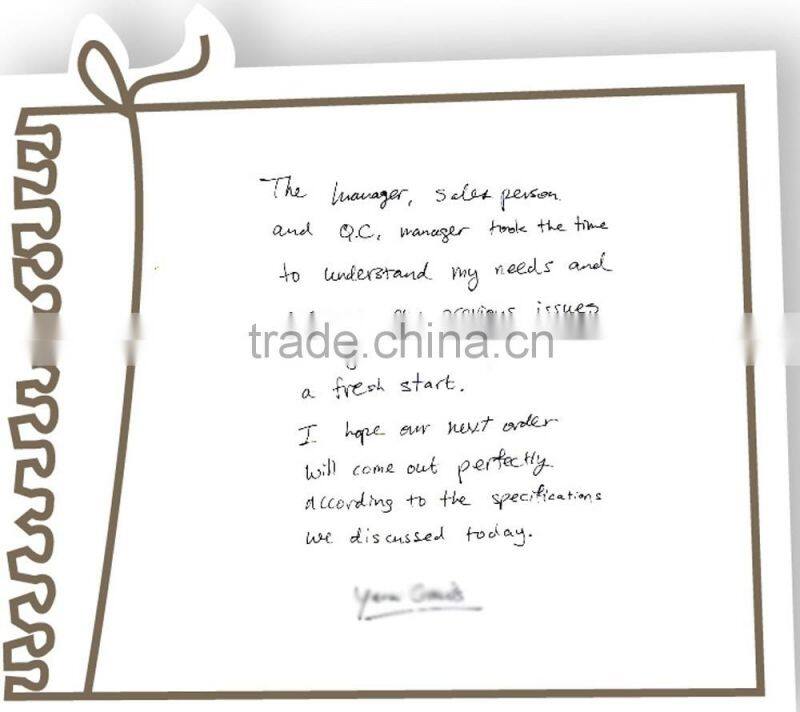 The manager, sales person
and Q.C. manager took the time
to understand my needs and
our previous issues
trade.china.cn
a fresh start.
I hope our next order
will come out perfectly
according to the specifications
we discussed today.